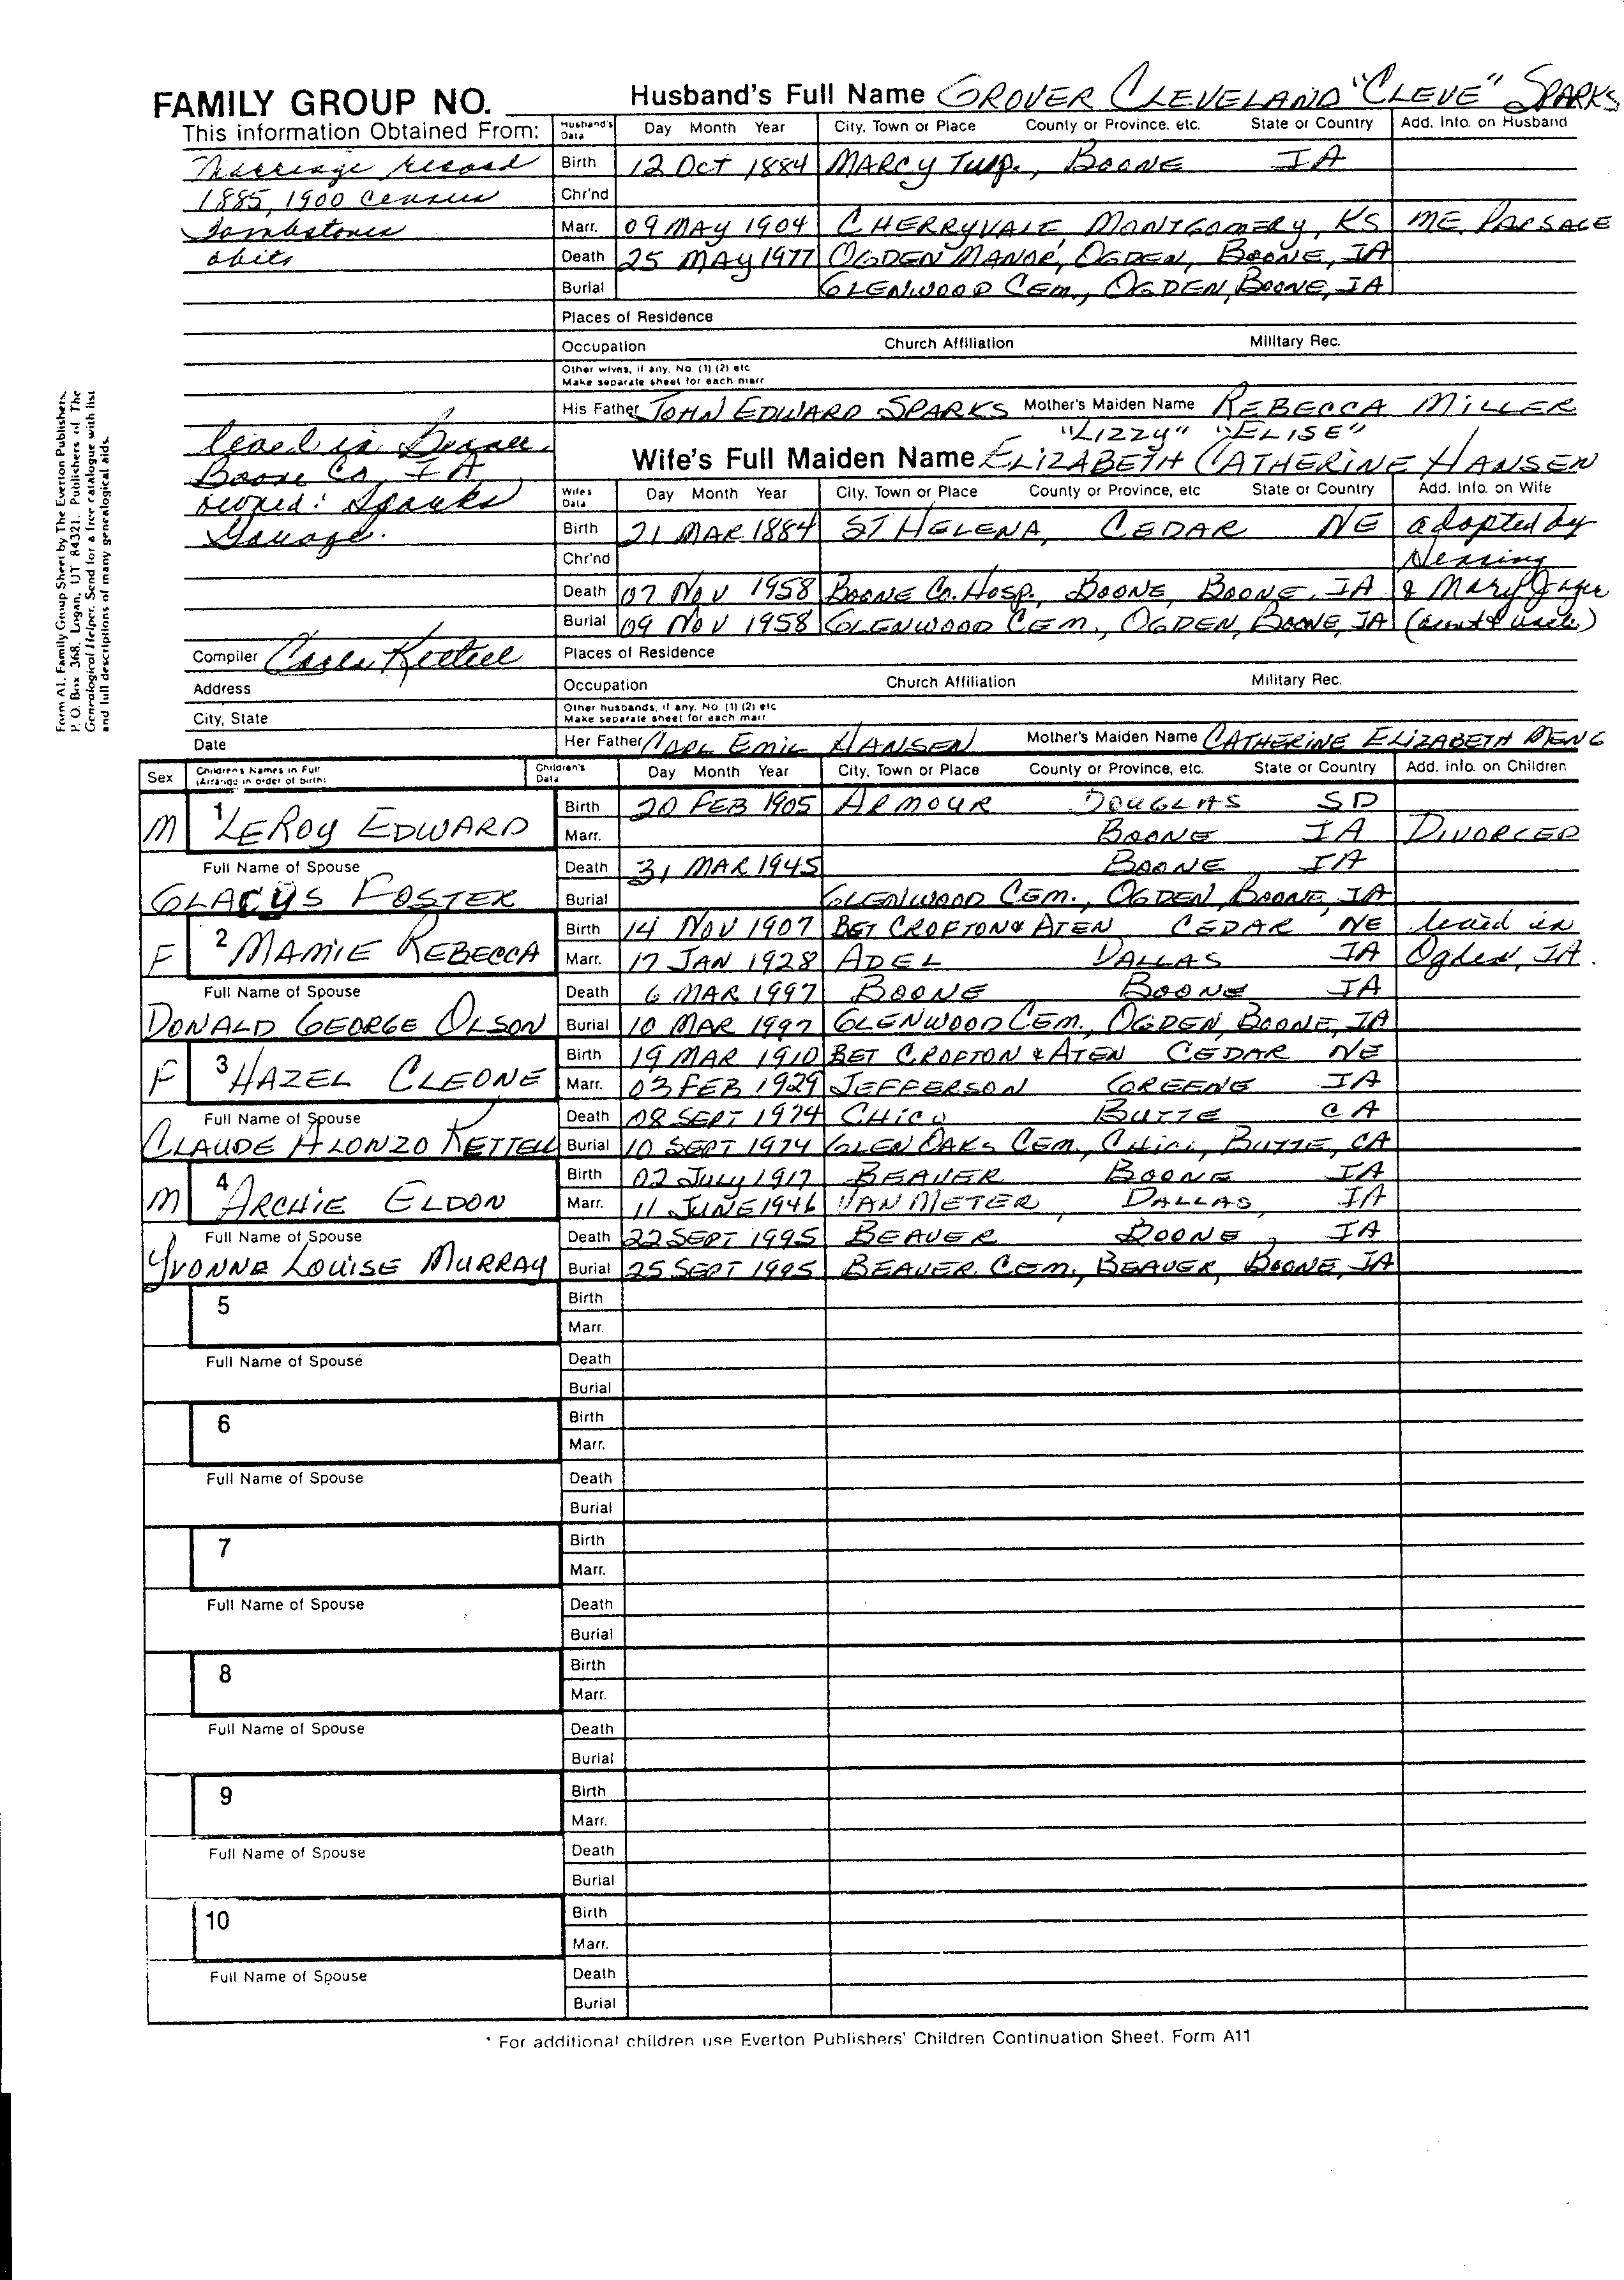 FAMILY GROUP NO.
Husband's Full Name GROVER CLEVELAND "CLEVE" SPARKS
This information Obtained From:
Husband's Data Day Month Year City, Town or Place County or Province, etc. State or Country Add. Info. on Husband
Marriage record
Birth 12 OCT 1884 MARCY Twp., BOONE IA
1885, 1900 census
Chr'nd
Tombstones
Marr. 09 MAY 1904 CHERRYVALE, MONTGOMERY, KS ME. PARSAGE
obits
Death 25 MAY 1977 OGDEN MANOR, OGDEN, BOONE, IA
Burial GLENWOOD CEM., OGDEN, BOONE, IA
Places of Residence
Occupation Church Affiliation Military Rec.
Other wives, if any. No. (1) (2) etc
Make separate sheet for each marr
His Father JOHN EDWARD SPARKS Mother's Maiden Name REBECCA MILLER
lived in Beaver,
Boone Co, IA
owned: Sparks
Garage.
"LIZZY" "ELISE"
Wife's Full Maiden Name ELIZABETH CATHERINE HANSEN
Wife's Data Day Month Year City, Town or Place County or Province, etc State or Country Add. Info. on Wife
Birth 21 MAR 1884 ST HELENA, CEDAR NE adopted by
Chr'nd
Death 07 NOV 1958 BOONE Co. Hosp., BOONE, BOONE, IA & Mary
Burial 09 NOV 1958 GLENWOOD CEM., OGDEN, BOONE, IA (aunt & uncle)
Compiler Carla Kettell
Places of Residence
Address
Occupation Church Affiliation Military Rec.
City, State
Other husbands, if any. No. (1) (2) etc
Make separate sheet for each marr.
Date
Her Father CARL EMIL HANSEN Mother's Maiden Name CATHERINE ELIZABETH MENG
Sex Children's Names in Full (Arrange in order of birth) Children's Data Day Month Year City, Town or Place County or Province, etc. State or Country Add. info. on Children
M 1 LEROY EDWARD
Birth 20 FEB 1905 ARMOUR DOUGLAS SD
Marr. BOONE IA DIVORCED
Full Name of Spouse
Death 31 MAR 1945 BOONE IA
GLADYS FOSTER
Burial GLENWOOD CEM., OGDEN, BOONE, IA
F 2 MAMIE REBECCA
Birth 14 NOV 1907 BET CROFTON & ATEN CEDAR NE lived in
Marr. 17 JAN 1928 ADEL DALLAS IA Ogden, IA.
Full Name of Spouse
Death 6 MAR 1997 BOONE BOONE IA
DONALD GEORGE OLSON
Burial 10 MAR 1997 GLENWOOD CEM., OGDEN, BOONE, IA
F 3 HAZEL CLEONE
Birth 19 MAR 1910 BET CROFTON & ATEN CEDAR NE
Marr. 03 FEB 1929 JEFFERSON GREENE IA
Full Name of Spouse
Death 08 SEPT 1974 CHICO BUTTE CA
CLAUDE ALONZO KETTELL
Burial 10 SEPT 1974 GLEN OAKS CEM., CHICO, BUTTE, CA
M 4 ARCHIE ELDON
Birth 02 JULY 1917 BEAVER BOONE IA
Marr. 11 JUNE 1946 VAN METER, DALLAS, IA
Full Name of Spouse
Death 22 SEPT 1995 BEAVER BOONE, IA
YVONNE LOUISE MURRAY
Burial 25 SEPT 1995 BEAVER CEM., BEAVER, BOONE, IA
5 Birth
Marr.
Full Name of Spouse Death
Burial
6 Birth
Marr.
Full Name of Spouse Death
Burial
7 Birth
Marr.
Full Name of Spouse Death
Burial
8 Birth
Marr.
Full Name of Spouse Death
Burial
9 Birth
Marr.
Full Name of Spouse Death
Burial
10 Birth
Marr.
Full Name of Spouse Death
Burial
* For additional children use Everton Publishers' Children Continuation Sheet. Form A11
Form A1. Family Group Sheet by The Everton Publishers,
P. O. Box 368, Logan, UT 84321. Publishers of The
Genealogical Helper. Send for a free catalogue with list
and full descriptions of many genealogical aids.